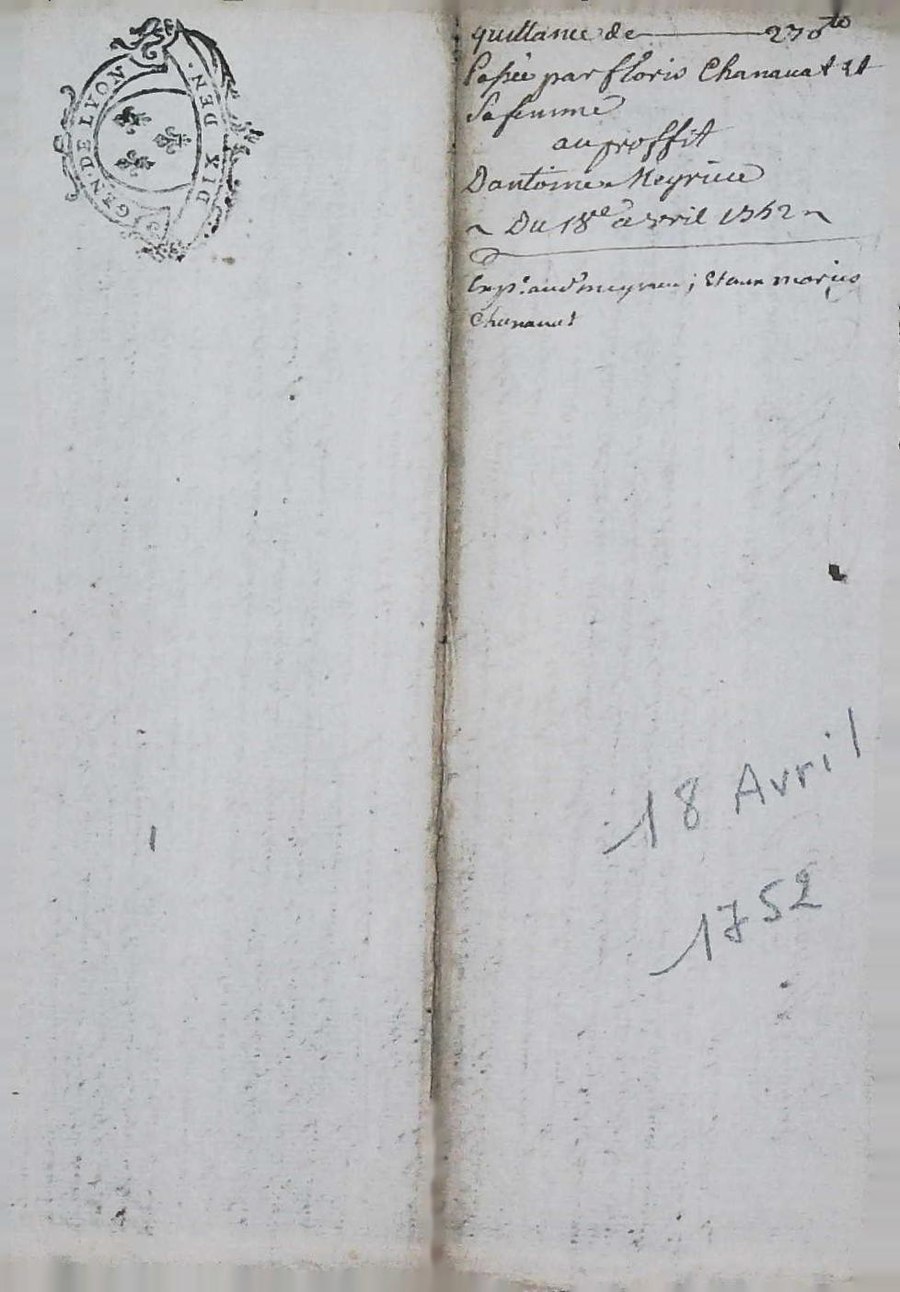 GEN. DE LYON
DIX DEN.
quittance de 270 lt
passée par floris Chanauat et
sa femme
au proffit
Dantoine Meyrieu
Du 18e avril 1752
Exp. aud. meyrieu ; et aux mariés
Chanauat
18 Avril
1752